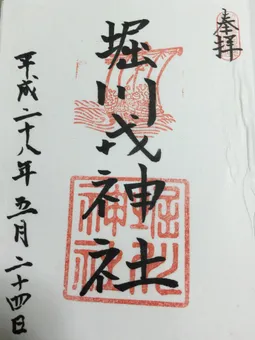 奉拝
堀川戎神社
平成二十八年五月二十四日
堀川
神社